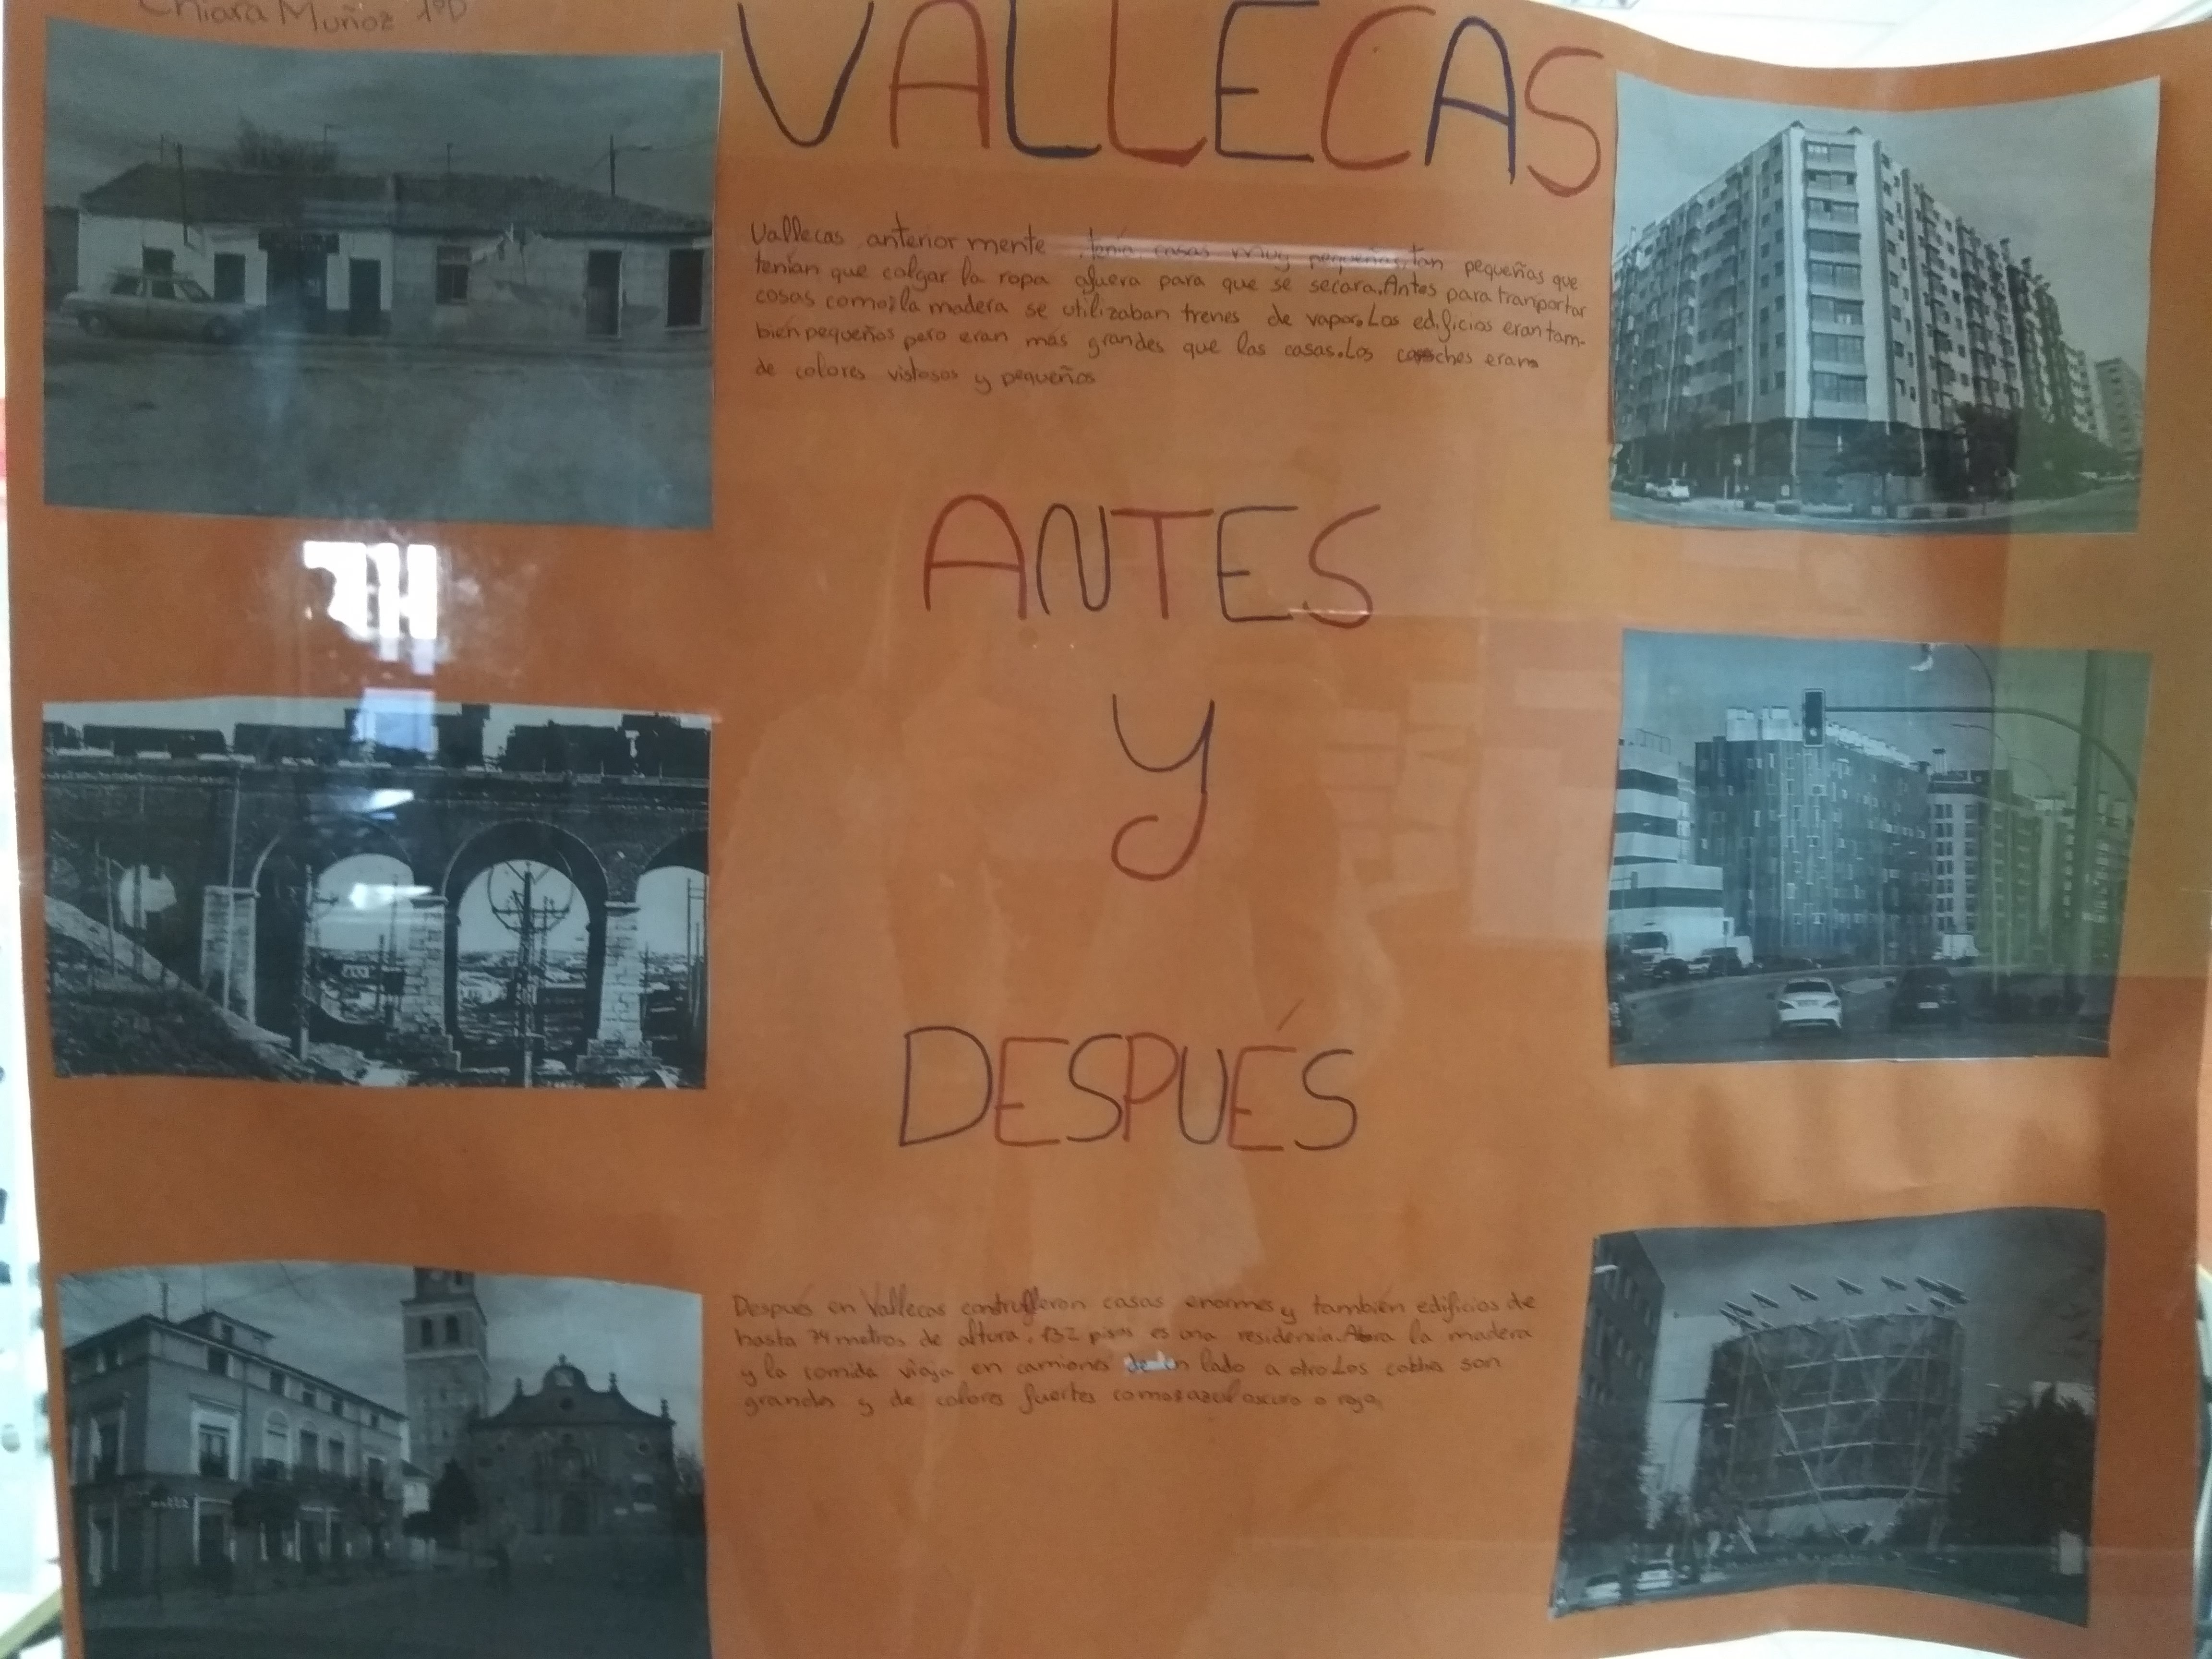 Chiara Muñoz 1ºD
VALLECAS
Vallecas anteriormente tenía casas muy pequeñas, tan pequeñas que
tenían que colgar la ropa afuera para que se secara. Antes para tranportar
cosas como; la madera se utilizaban trenes de vapor. Los edificios eran tam-
bien pequeños pero eran mas grandes que las casas. Los coches eran
de colores vistosos y pequeños
ANTES
Y
DESPUÉS
Despues en Vallecas casas enormes y también edificios de
hasta 74 metros de altura, 132 pisos es una residencia. Ahora la madera
y la comida viaja en camiones de un lado a otro. Los coches son
grandes y de colores fuertes como azul oscuro o rojo.